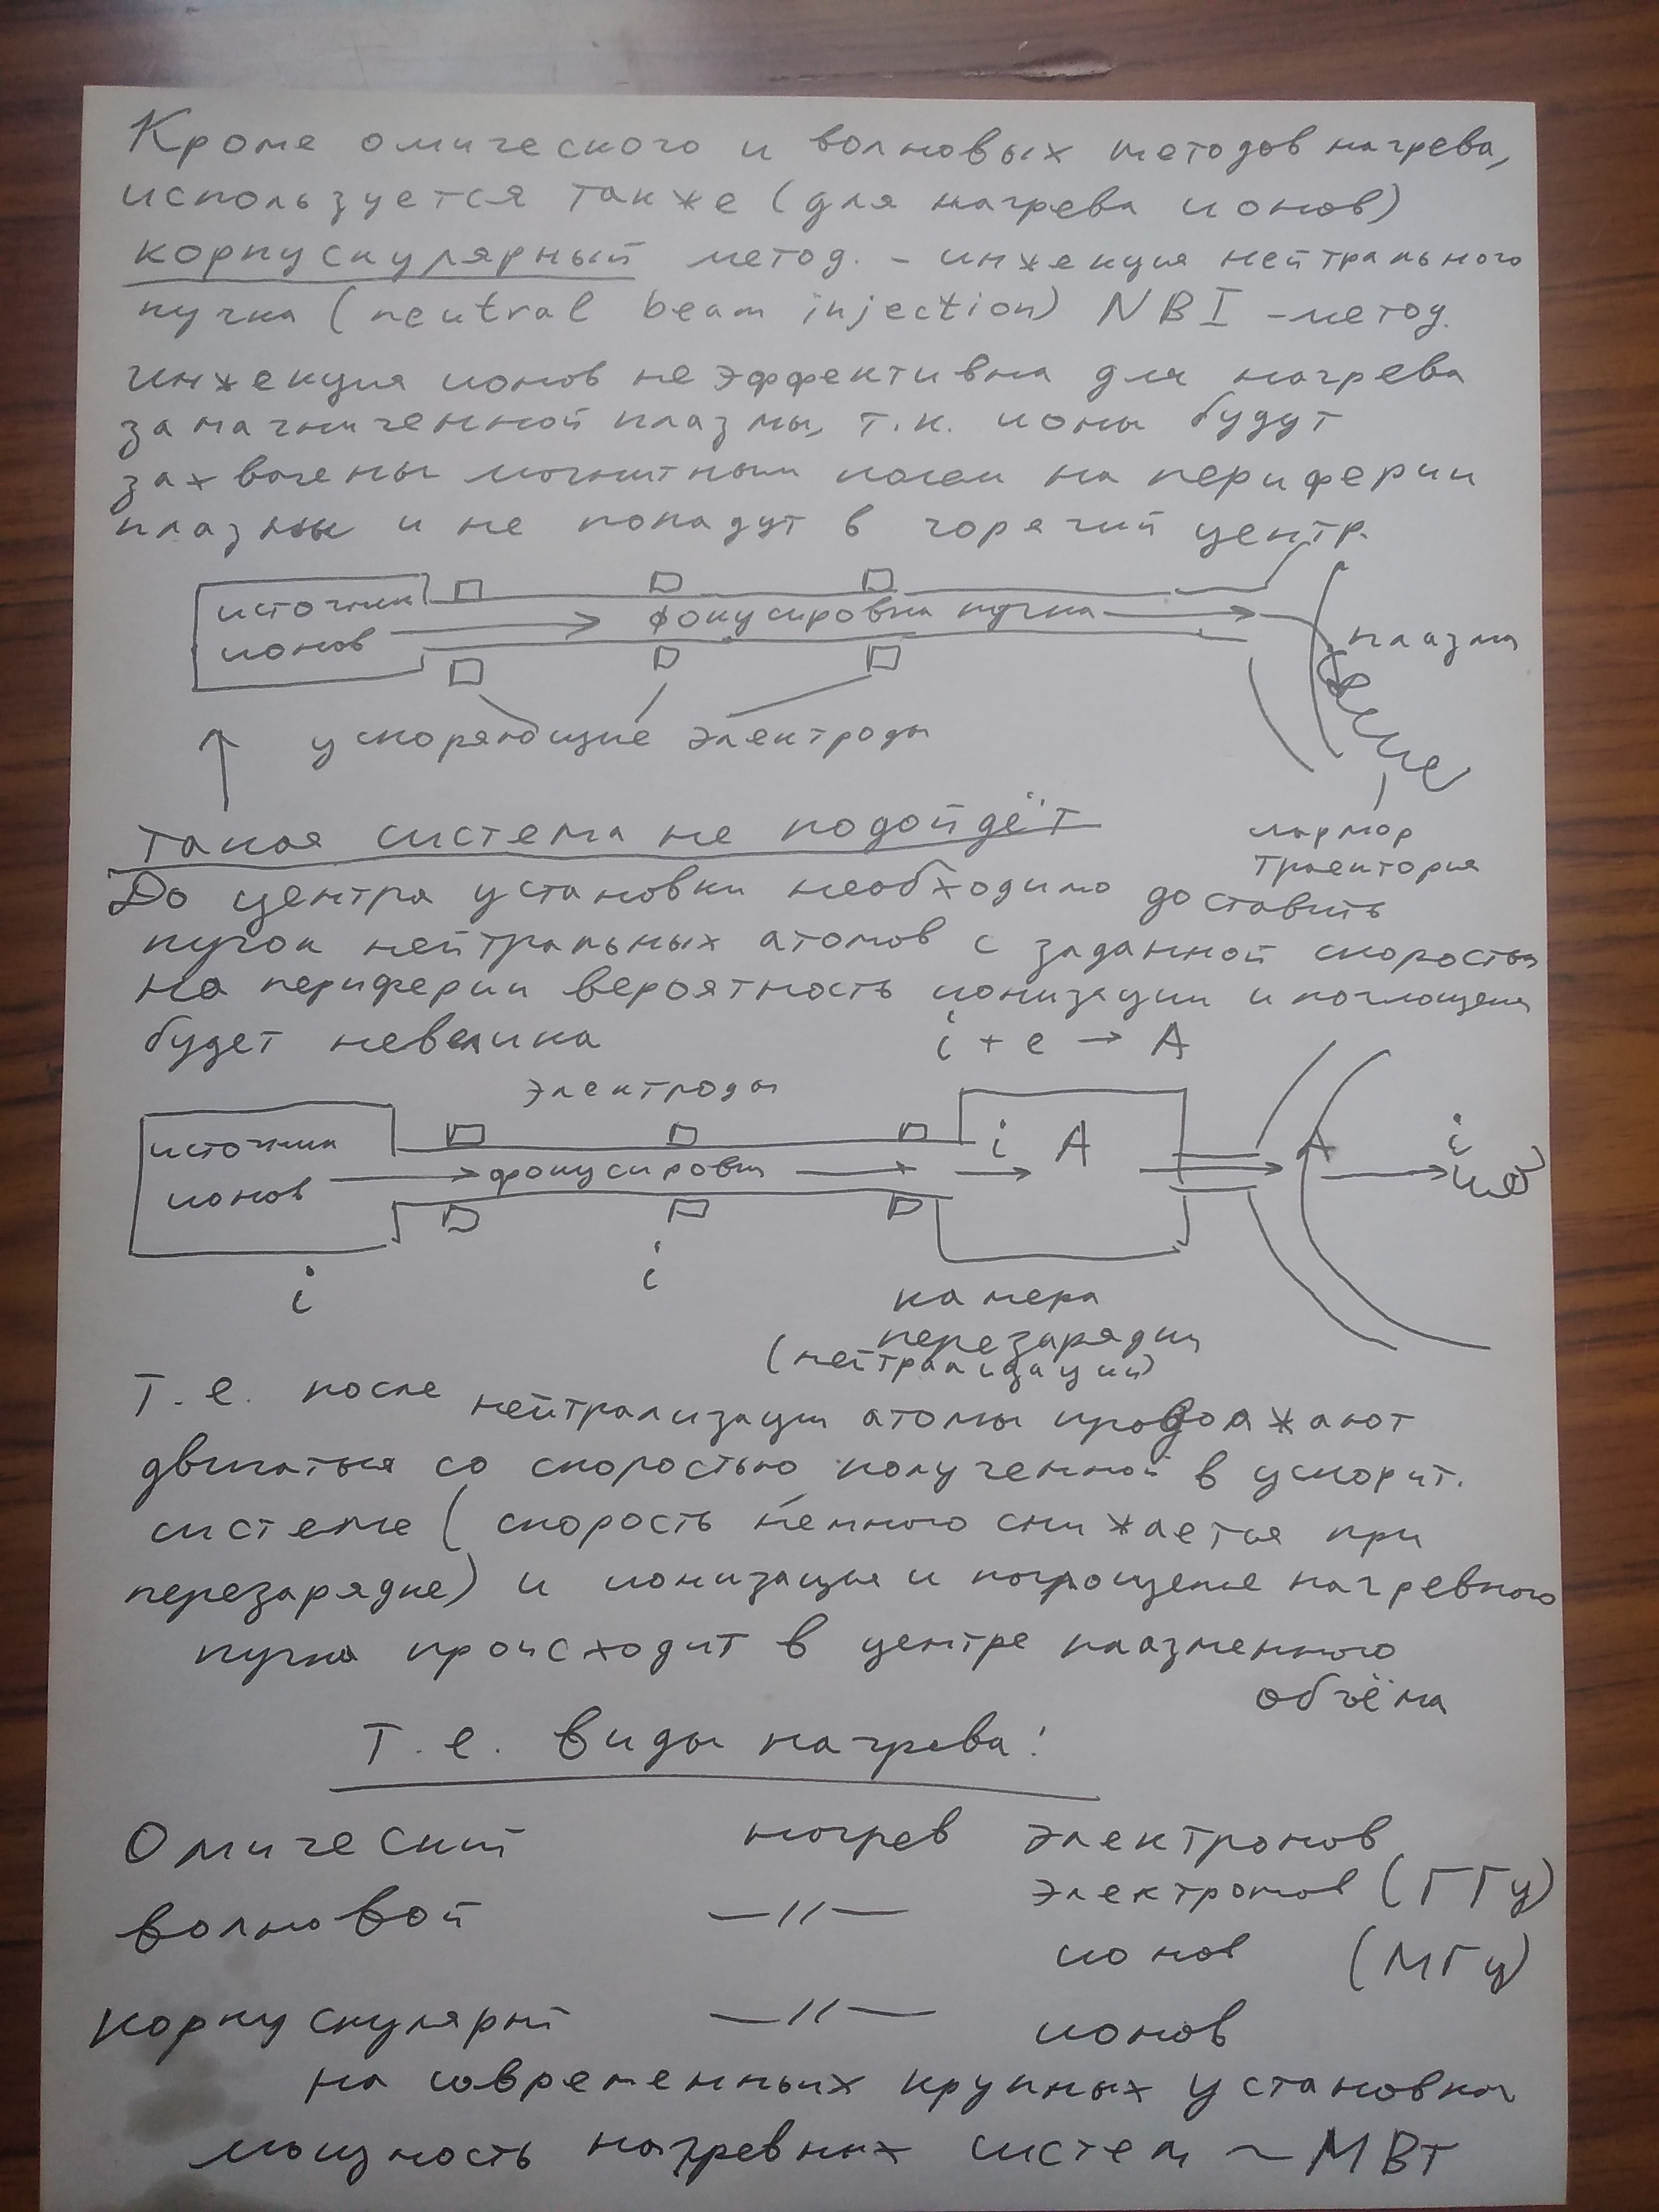 Кроме омического и волновых методов нагрева,
используется также (для нагрева ионов)
корпускулярный метод. - инжекция нейтрального
пучка (neutral beam injection) NBI - метод.
инжекция ионов неэффективна для нагрева
замагниченной плазмы, т.к. ионы будут
захвачены магнитным полем на периферии
плазмы и не попадут в горячий центр.
источник
ионов
фокусировка пучка
плазма
ускоряющие электроды
Такая система не подойдёт
лармор
траектория
До центра установки необходимо доставить
пучок нейтральных атомов с заданной скоростью
На периферии вероятность ионизации и поглощения
будет невелика
i + e → A
электроды
источник
ионов
фокусировка
i A
A
i
i
i
камера
перезарядки
(нейтрализации)
Т.е. после нейтрализации атомы продолжают
двигаться со скоростью полученной в ускорит.
системе (скорость немного снижается при
перезарядке) и ионизация и поглощение нагревного
пучка происходит в центре плазменного
объёма
Т.е. виды нагрева:
Омический нагрев электронов
волновой —//— электронов (ГГц)
ионов (МГц)
корпускулярн —//— ионов
на современных крупных установках
мощность нагревных систем ~ МВт